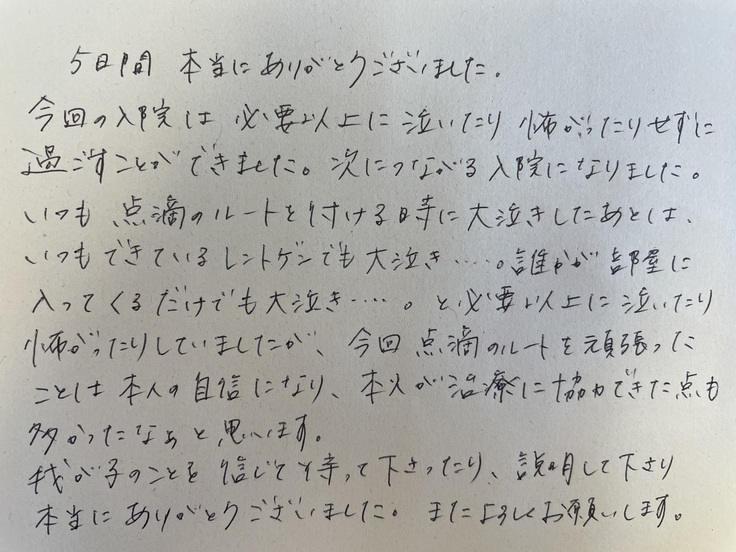 5日間 本当にありがとうございました。
今回の入院は 必要以上に 泣いたり 怖がったりせずに
過ごすことができました。次につながる入院になりました。
いつも 点滴のルートを付ける時に大泣きしたあとは、
いつもできているレントゲンでも大泣き……。誰かが部屋に
入ってくるだけでも大泣き……。と必要以上に泣いたり
怖がったりしていましたが、今回 点滴のルートを頑張った
ことは本人の自信になり、本人が治療に協力できた点も
多かったなぁと思います。
我が子のことを信じて待って下さったり、説明して下さり
本当にありがとうございました。またよろしくお願いします。